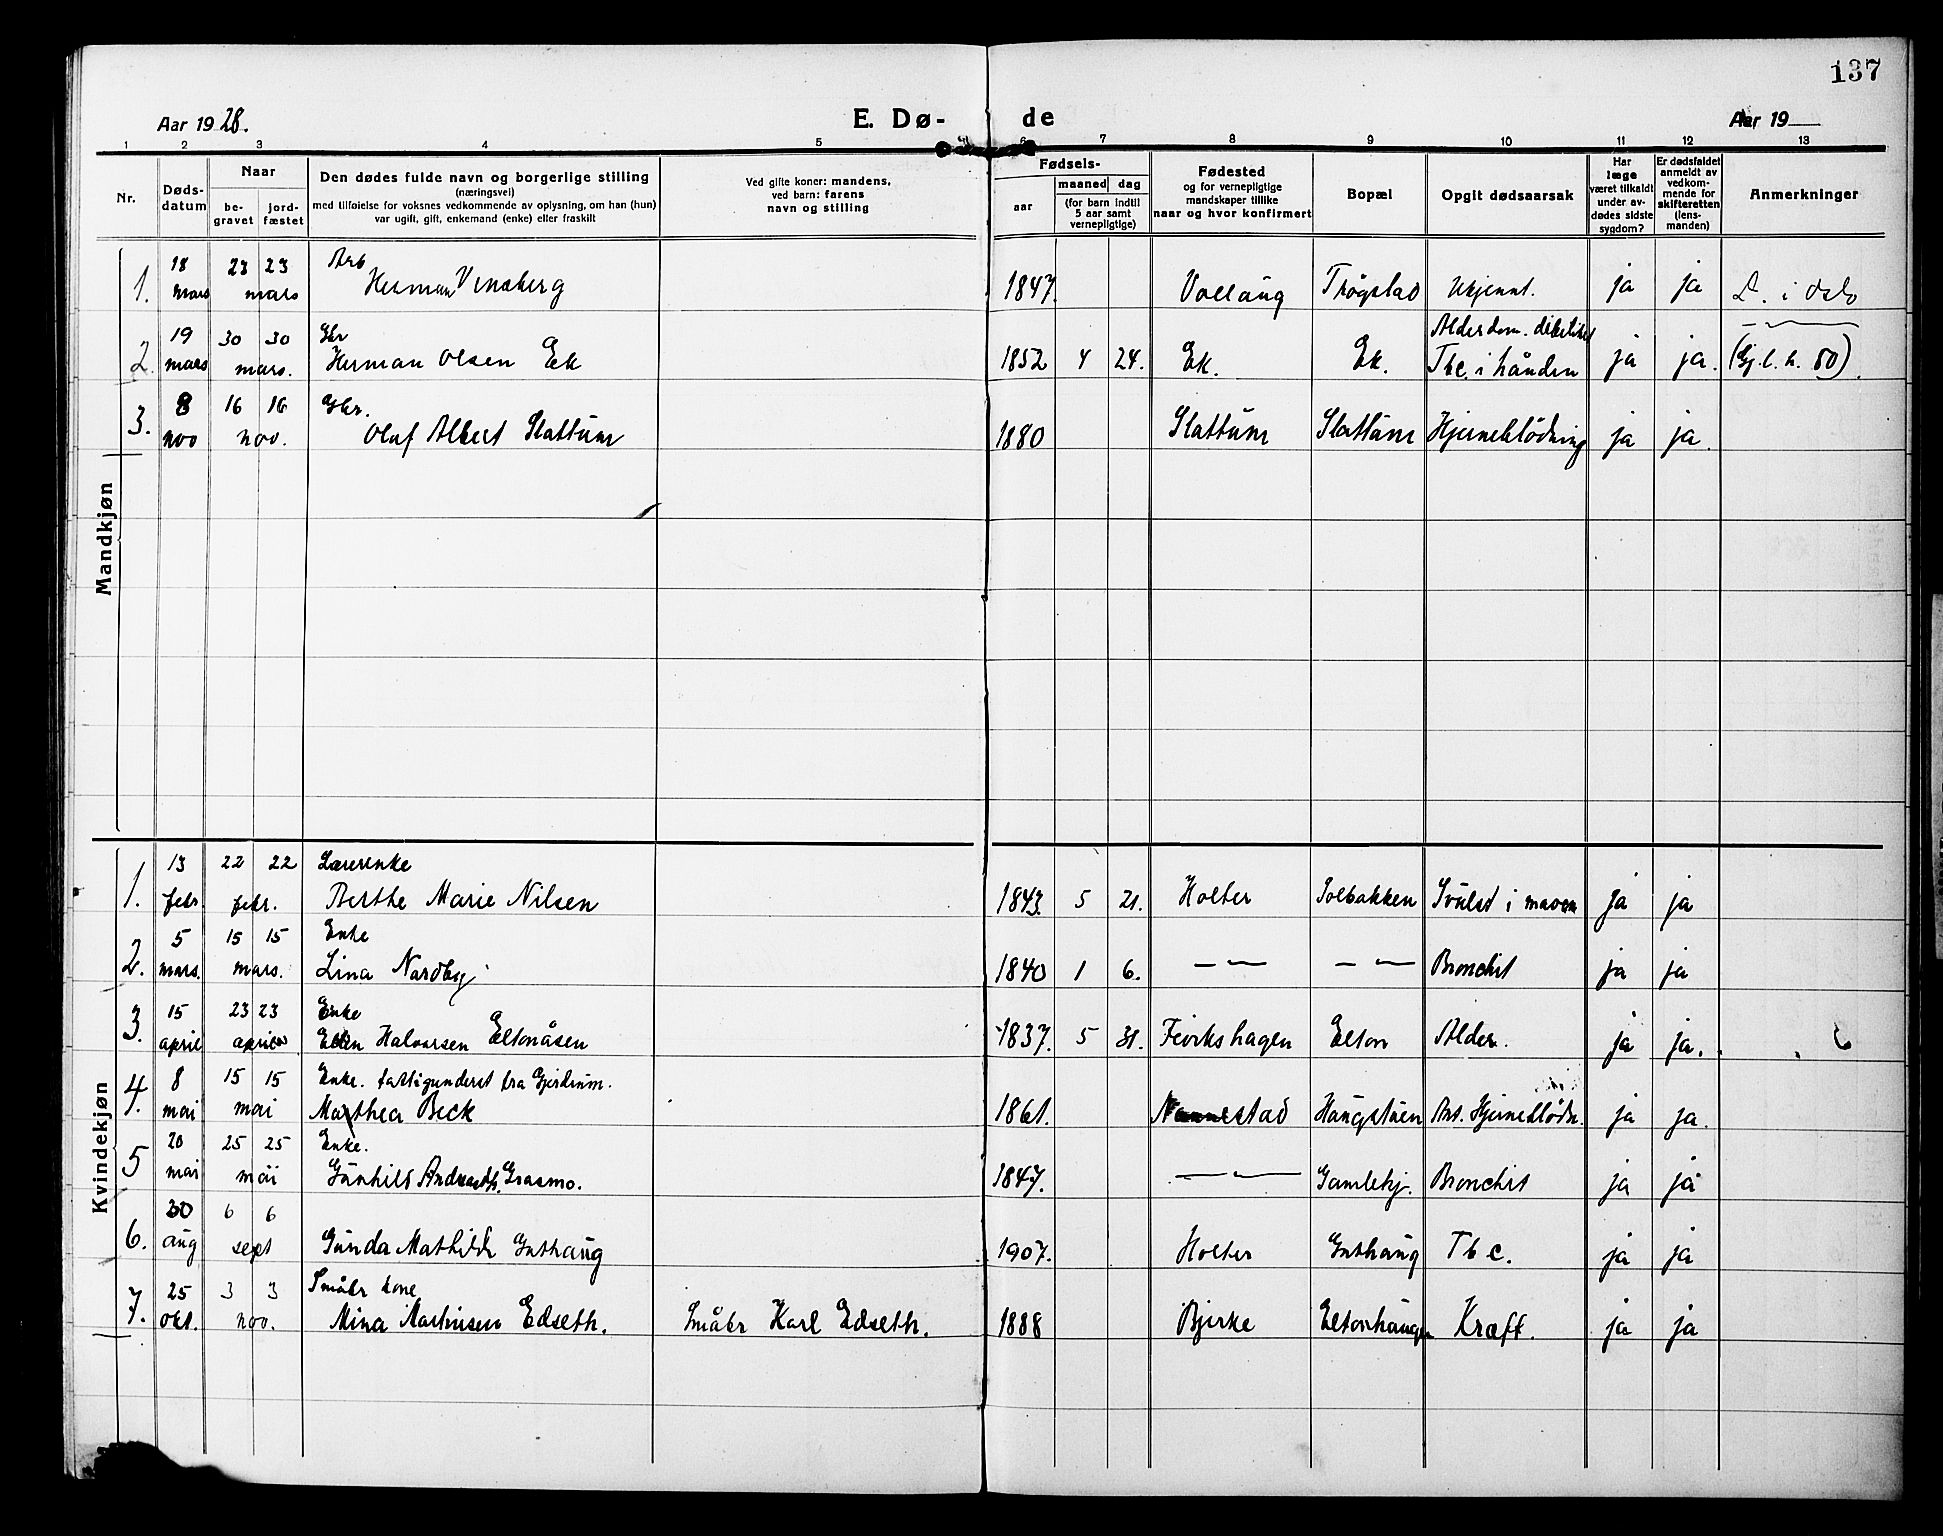 137
Aar 1928.
E. Dø-
de
Aar 19
1 2 3 4 5 6 7 8 9 10 11 12 13
Nr.
Døds-
datum
Naar
be-
gravet
jord-
fæstet
Den dødes fulde navn og borgerlige stilling
(næringsvei)
med tilføielse for voksnes vedkommende av oplysning, om han (hun)
var ugift, gift, enkemand (enke) eller fraskilt
Ved gifte koner: mandens,
ved barn: farens
navn og stilling
Fødsels-
aar
maaned
dag
(for barn indtil
5 aar samt
vernepligtige)
Fødested
og for vernepligtige
mandskaper tillike
naar og hvor konfirmert
Bopæl
Opgit dødsaarsak
Har
læge
været tilkaldt
under av-
dødes sidste
sygdom?
Er dødsfaldet
anmeldt av
vedkom-
mende for
skifteretten
(lens-
manden)
Anmerkninger
Mandkjøn
18 23 23 Arb
1. mars mars Herman 1847. Trøgstad Ukjennt. ja ja D. i Oslo
19 30 30 Gbr Alderdom.
2. mars mars. Herman Olsen Ek 1852 4 24. Ek. Ek. Tbc. i hånden ja ja. (Gj. l. h. 50).
8 16 16 Gbr.
3. nov nov. Oluf Albert Slattum 1880 Slattum Slattum Hjerneblødning ja ja.
Kvindekjøn
13 22 22 Lærerenke
1. febr. febr. Berthe Marie Nilsen 1843. 5 21. Holter Solbakken Svulst i maven ja ja
5 15 15 Enke
2. mars. mars. Lina Nordby 1840 1 6. — „ — — „ — Bronchit ja ja
15 23 23 Enke
3. april april Ellen Halvorsen Eltonåsen 1837. 5 31. Elton Alder. ja ja.
8 15 15 Enke. fattigunderst fra Gjerdrum.
4. mai mai Marthea Beck 1861. Nannestad Haugstuen Ant. Hjerneblødn. ja ja.
20 25 25 Enke.
5 mai mai Gunhild Grasmo. 1847. — „ — Gamlehj. Bronchit ja ja
30 6 6
6. aug sept Gunda Mathilde 1907. Holter Tbc. ja ja
25 3 3 Småbr kone
7. okt. nov. Mina Martinsen Edseth. Småbr Karl Edseth. 1888 Bjerke Eltonhaugen Kræft. ja ja